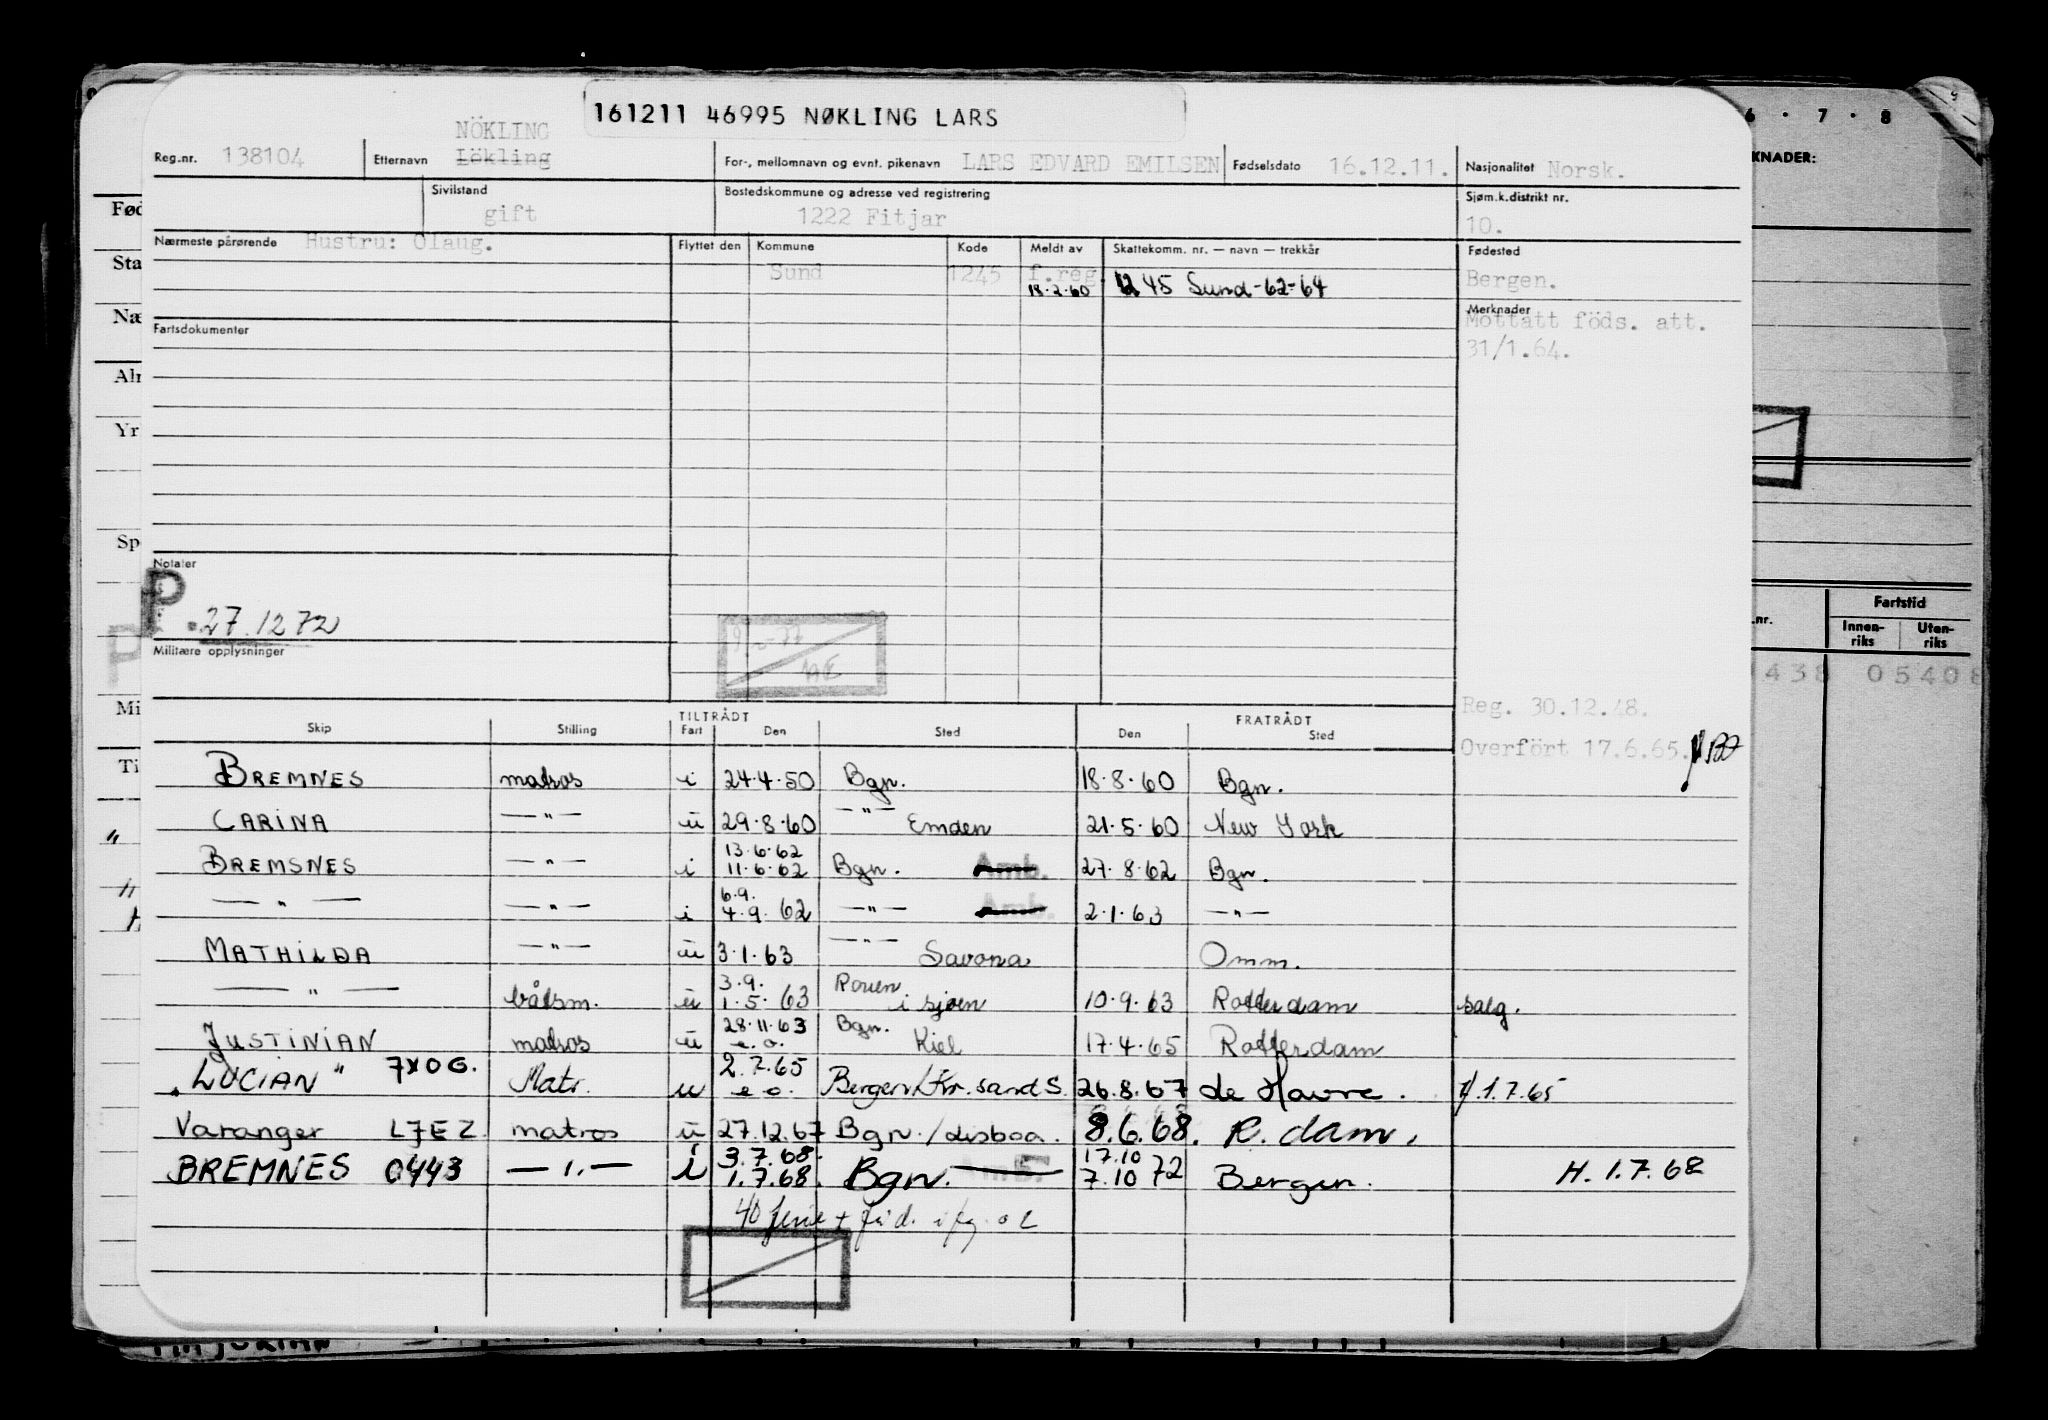 161211 46995 NØKLING LARS
NÖKLING
Reg.nr. 138104 Etternavn Lökling For-, mellomnavn og evnt. pikenavn LARS EDVARD EMILSEN Fødselsdato 16.12.11. Nasjonalitet Norsk.
Sivilstand gift Bostedskommune og adresse ved registrering 1222 Fitjar Sjøm.k.distrikt nr. 10.
Nærmeste pårørende Hustru: Olaug. Flyttet den Kommune Kode Meldt av Skattekomm. nr. — navn — trekkår Fødested
Sund 1245 f.reg 1245 Sund-62-64 Bergen.
18.2.60
Fartsdokumenter Merknader
Mottatt föds. att.
31/1.64.
Notater
P 27.12 72
Militære opplysninger
Reg. 30.12.48.
Overfört 17.6.65.
TILTRÅDT FRATRÅDT
Skip Stilling Fart Den Sted Den Sted
BREMNES matros i 24.4.50 Bgn. 18.8.60 Bgn.
CARINA —"— ü 29.8.60 —"— Emden 21.5.60 New York
BREMSNES —"— i 13.6.62 11.6.62 Bgn. Amb. 27.8.62 Bgn.
—"— —"— i 6.9. 4.9.62 —"— Amb. 2.1.63 —"—
MATHILDA —"— ü 3.1.63 —"— Savona Omm.
—"— båtsm. ü 3.9. 1.5.63 Rouen i sjøen 10.9.63 Rotterdam salg.
JUSTINIAN matros ü 28.11.63 e.o. Bgn. Kiel 17.4.65 Rotterdam
"LUCIAN" 7XOG. Matr. u 2.7.65 e o. Bergen/Kr.sand S. 26.8.67 de Havre. 1.7.65
Varanger LJEZ matros ü 27.12.67 Bgn./Lisboa. 8.6.68. R.dam.
BREMNES 0443 —"— i 3.7.68. 1.7.68. Bgn. 17.10 7.10 72 Bergen. H. 1.7.68
40 ferie +
KNADER:
6 · 7 · 8
Fartstid
Innen-riks Uten-riks
.nr.
438 05408
Fød
Sta
Næ
Yr
Sp
Mi
Ti